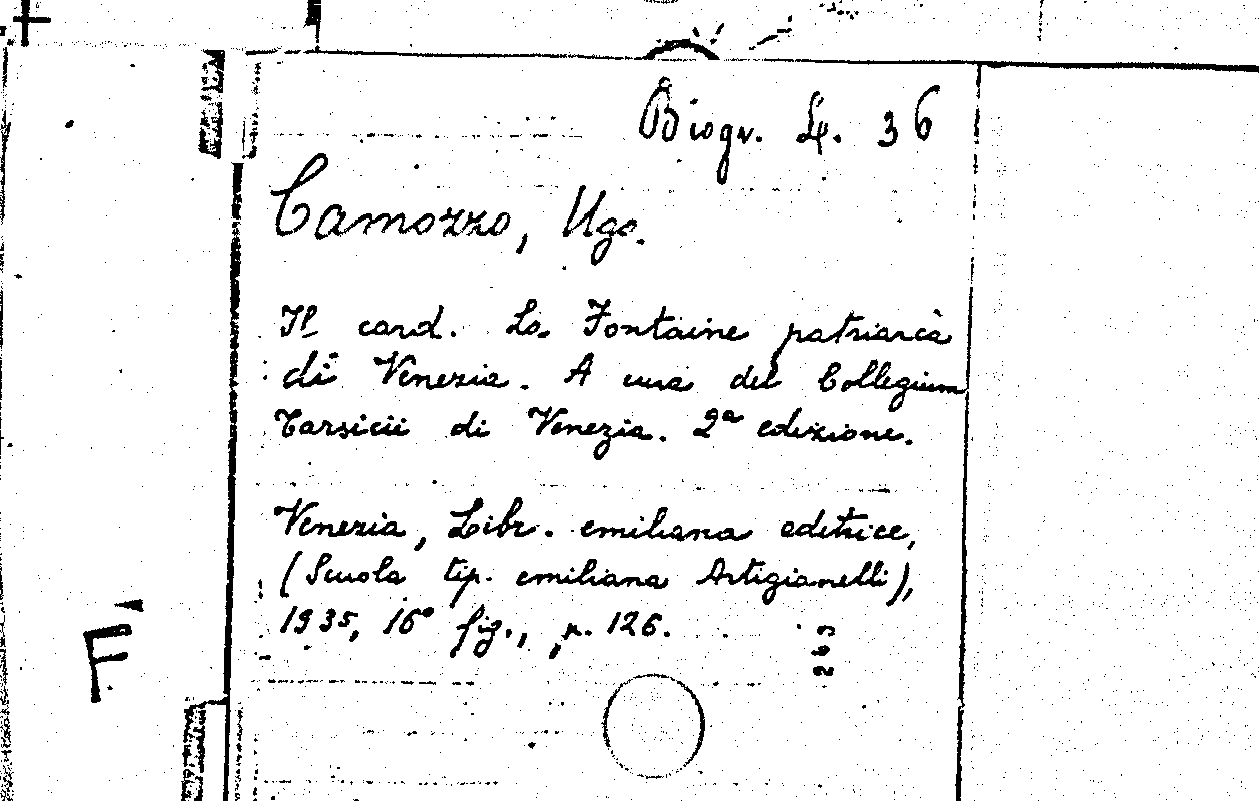 Biogr. L. 36
Camozzo, Ugo.
Il card. La Fontaine patriarca
di Venezia. A cura del Collegium
Tarsicii di Venezia. 2ª edizione.
Venezia, Libr. emiliana editrice,
(Scuola tip. emiliana Artigianelli),
1935, 16° fig., p. 126.
F